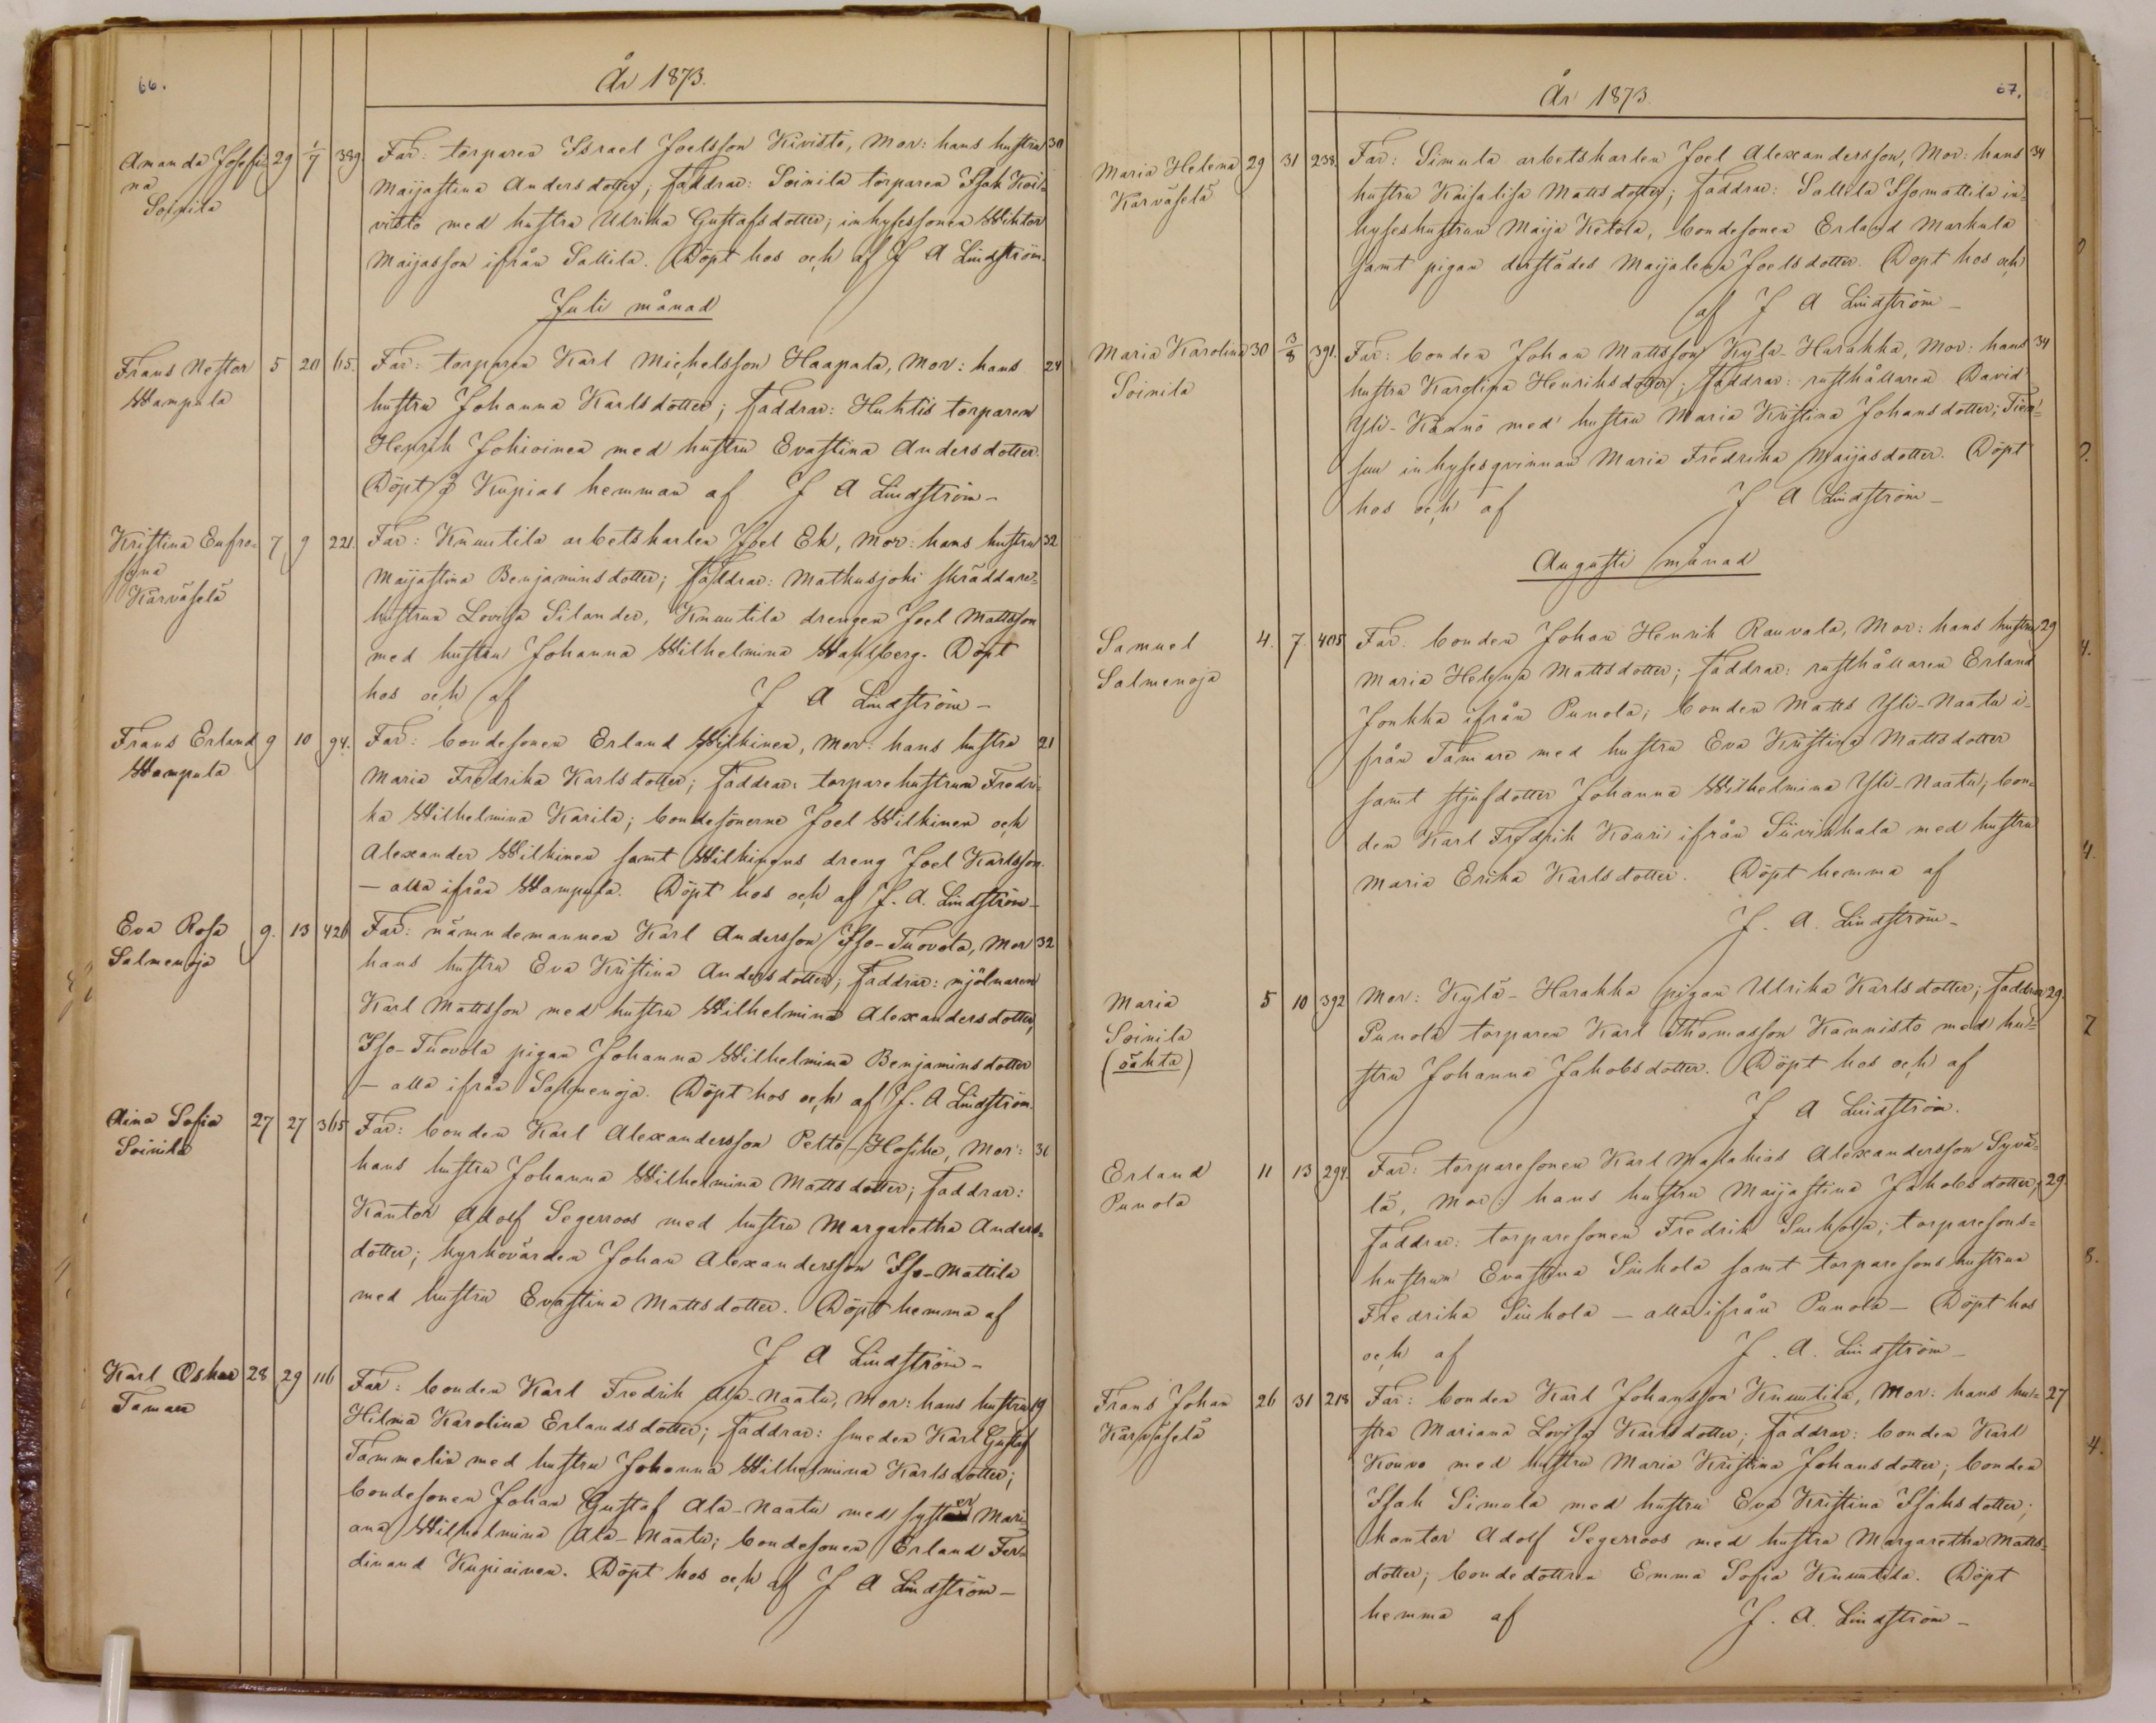 66.
År 1873.
Amanda Josefi- 29 1/7 389 Far: torparen Israel Joelsson Kivistö, Mor: hans hustru 30
na Maijastina Andersdotter; Faddrar: Soinila torparen Isak Koi-
Soinila visto med hustru Ulrika Gustafsdotter; inhysessonen Wiktor
Maijasson ifrån Sallila. Döpt hos och af J A Lindström.
Juli månad
Frans Nestor 5 20 65. Far: torparen Karl Michelsson Haapala, Mor: hans 24
Wampula hustru Johanna Karlsdotter; Faddrar: Huhtis torparen
Henrik Johioinen med hustru Evastina Andersdotter.
Döpt å Kupias hemman af J A Lindström -
Kristina Eufro- 7 9 221. Far: Knuutila arbetskarlen Joel Ek, Mor: hans hustru 32
syna Maijastina Benjaminsdotter; Faddrar: Matkusjoki skräddare-
Kärväselä hustrun Lovisa Silander, Knuutila drengen Joel Mattsson
med hustru Johanna Wilhelmina Wahlberg. Döpt
hos och af J A Lindström -
Frans Erland 9 10 94. Far: bondesonen Erland Wilkinen, Mor: hans hustru 21
Wampula Maria Fredrika Karlsdotter; Faddrar: torparehustrun Fredri-
ka Wilhelmina Karila; bondesönerne Joel Wilkinen och
Alexander Wilkinen samt Wilkinens dreng Joel Karlsson
- alla ifrån Wampula. Döpt hos och af J. A. Lindström -
Eva Rosa 9. 13 426 Far: nämndemannen Karl Andersson Iso-Tuovola, Mor 32
Salmenoja hans hustru Eva Kristina Andersdotter; Faddrar: mjölnaren
Karl Mattsson med hustru Wilhelmina Alexandersdotter,
Iso-Tuovola pigan Johanna Wilhelmina Benjaminsdotter
- alla ifrån Salmenoja. Döpt hos och af J. A Lindström.
Aina Sofia 27 27 365 Far: bonden Karl Alexandersson Pelto-Hoske, Mor: 31
Soinila hans hustru Johanna Wilhelmina Mattsdotter; Faddrar:
Kantor Adolf Segerroos med hustru Margaretha Anders-
dotter; kyrkovärden Johan Alexandersson Iso-Mattila
med hustru Evastina Mattsdotter. Döpt hemma af
J A Lindström -
Karl Oskar 28 29 116 Far: bonden Karl Fredrik Ala-Naatu, Mor: hans hustru 19
Tamare Hilma Karolina Erlandsdotter; Faddrar: smeden Karl Gustaf
Tammelin med hustru Johanna Wilhelmina Karlsdotter;
bondesonen Johan Gustaf Ala-Naatu med syster Mari-
ana Wilhelmina Ala-Naatu; bondesonen Erland Fer-
dinand Kupiainen. Döpt hos och af J A Lindström -
67.
År 1873.
Maria Helena 29 31 238. Far: Simula arbetskarlen Joel Alexandersson, Mor: hans 34
Kärväselä hustru Kaisalisa Mattsdotter; Faddrar: Sallila Isomattila in-
hyseshustrun Maija Ketola, bondesonen Erland Markula
samt pigan derstädes Maijalena Joelsdotter. Döpt hos och
af J A Lindström -
Maria Karolina 30 3/8 391. Far: bonden Johan Mattsson Kylä-Harakka, Mor: hans 34
Soinila hustru Karolina Henriksdotter; Faddrar: rusthållaren David
Yli-Kännö med hustru Maria Kristina Johansdotter;
suu inhysesqvinnan Maria Fredrika Maijasdotter. Döpt
hos och af J A Lindström -
Augusti månad
Samuel 4. 7. 405 Far: bonden Johan Henrik Rauvala, Mor: hans hustru 29
Salmenoja Maria Helena Mattsdotter; Faddrar: rusthållaren Erland
Jonkka ifrån Punola; bonden Matts Yli-Naatu i-
från Tamare med hustru Eva Kristina Mattsdotter
samt styfdotter Johanna Wilhelmina Yli-Naatu; bon-
den Karl Fredrik Kouri ifrån Siivikkala med hustru
Maria Erika Karlsdotter. Döpt hemma af
J. A. Lindström -
Maria 5 10 392 Mor: Kylä-Harakka pigan Ulrika Karlsdotter; Faddrar 29.
Soinila Punola torparen Karl Thomasson Kannisto med hu-
(oäkta) stru Johanna Jakobsdotter. Döpt hos och af
J A Lindström.
Erland 11 13 294. Far: torparesonen Karl Malakias Alexandersson Syvä-
Punola lä, Mor: hans hustru Maijastina Jakobsdotter; 29
Faddrar: torparesonen Fredrik Siukola; torparesons-
hustrun Evastina Siukola samt torparesonshustrun
Fredrika Siukola - alla ifrån Punola - Döpt hos
och af J. A. Lindström -
Frans Johan 26 31 218 Far: bonden Karl Johansson Knuutila, Mor: hans hu- 27
Kärväselä stru Mariana Lovisa Karlsdotter; Faddrar: bonden Karl
Kouvo med hustru Maria Kristina Johansdotter; bonden
Isak Simula med hustru Eva Kristina Isaksdotter;
kantor Adolf Segerroos med hustru Margaretha Matts-
dotter; bondedottren Emma Sofia Knuutila. Döpt
hemma af J. A. Lindström -